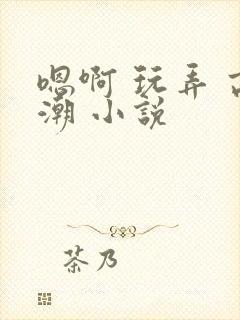 嗯啊 玩弄
潮 小説
茶乃